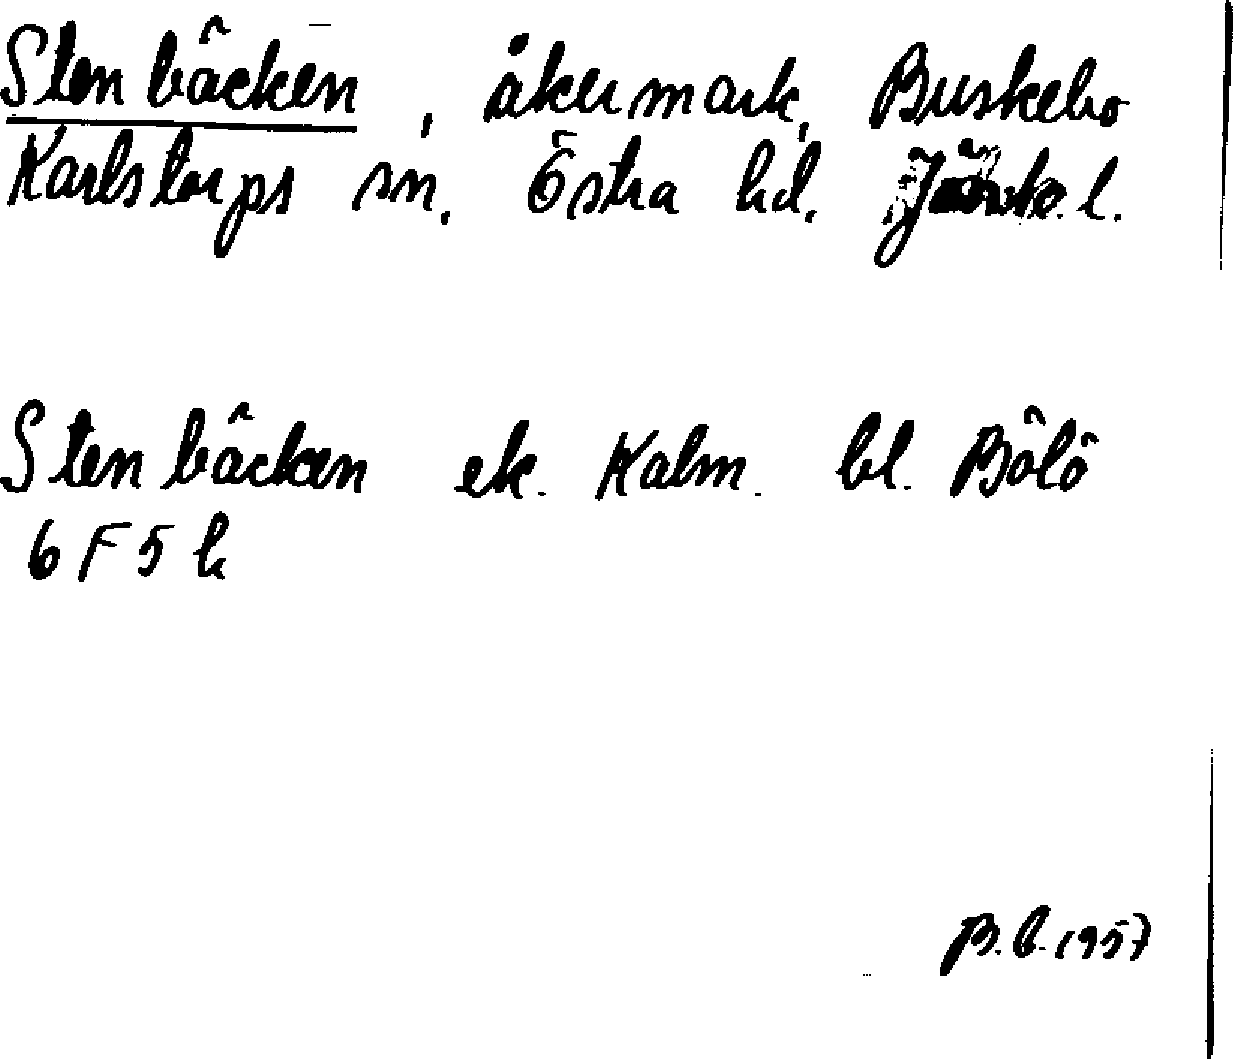 Stenbäcken, åkermark, Buskebo
Karlstorps sn. Östra hd. Jönk. l.
Stenbäcken ek. Kalm. bl. Bölö
6 F 5 h
B.C. 1957